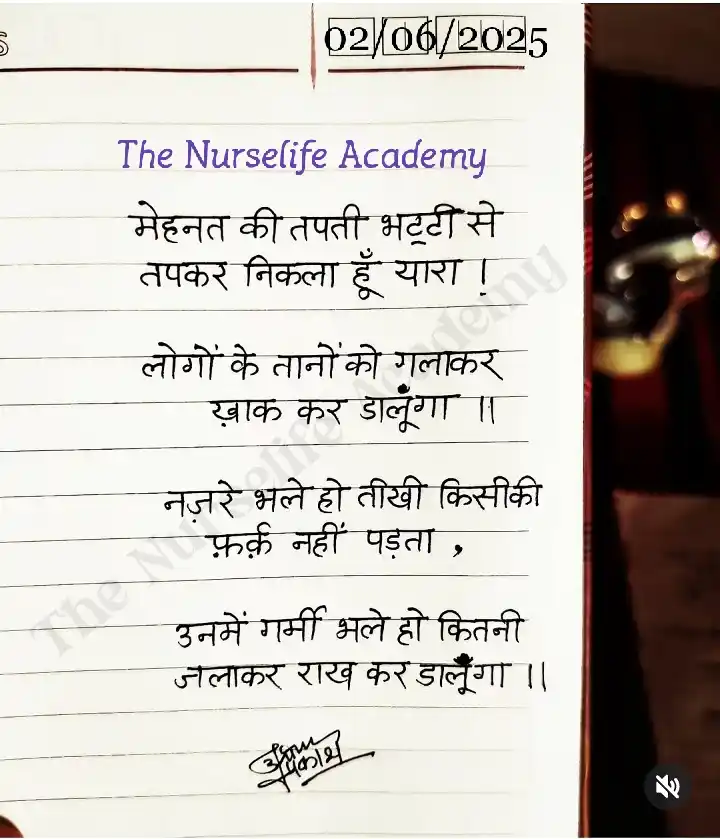 02/06/2025
The Nurselife Academy
मेहनत की तपती भट्टी से
तपकर निकला हूँ यारा !
लोगों के तानों को गलाकर
ख़ाक कर डालूंगा ॥
नज़रे भले हो तीखी किसीकी
फ़र्क़ नहीं पड़ता ,
उनमें गर्मी भले हो कितनी
जलाकर राख कर डालूँगा ॥
The Nurselife Academy